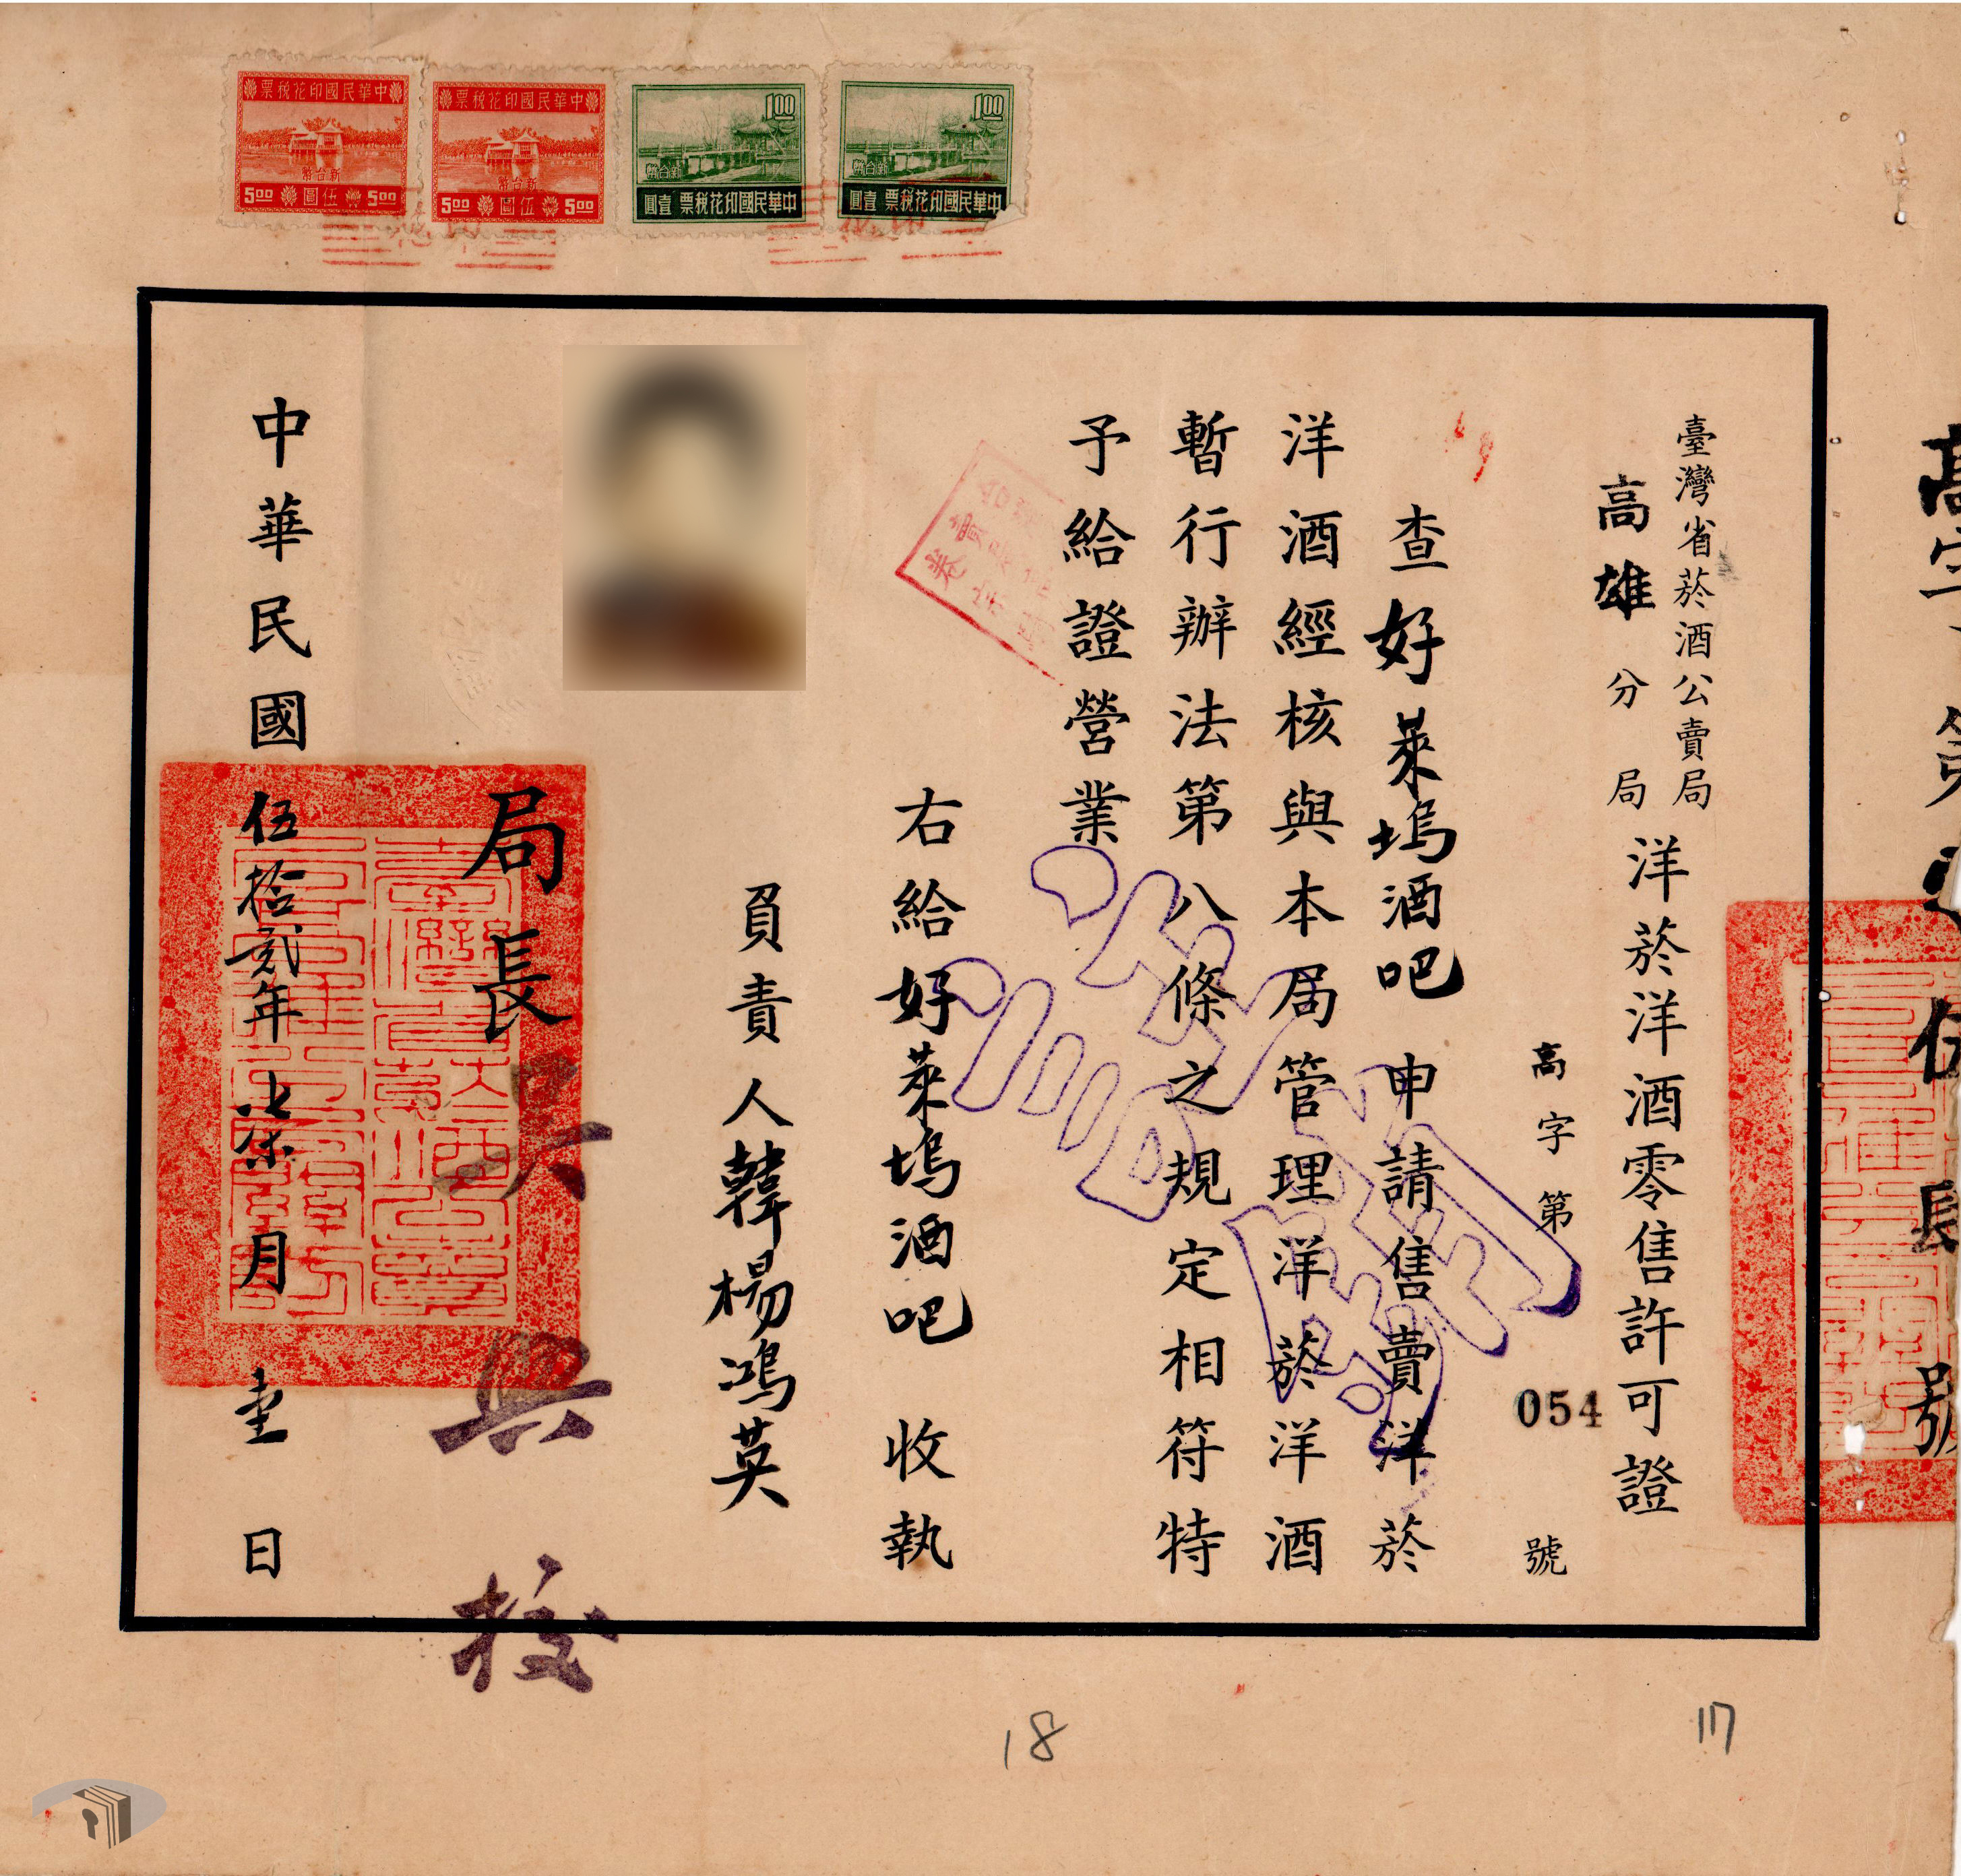 中華民國印花稅票
新台幣
5.00 伍圓 5.00
中華民國印花稅票
新台幣
5.00 伍圓 5.00
1.00
新台幣
中華民國印花稅票 壹圓
1.00
新台幣
中華民國印花稅票 壹圓
臺灣省菸酒公賣局
高雄分局
洋菸洋酒零售許可證
高字第054號
查好萊塢酒吧申請售賣洋菸
洋酒經核與本局管理洋菸洋酒
暫行辦法第八條之規定相符特
予給證營業
右給好萊塢酒吧 收執
負責人韓楊鴻英
局長吳興校
中華民國伍拾貳年 柒月壹日
18
117